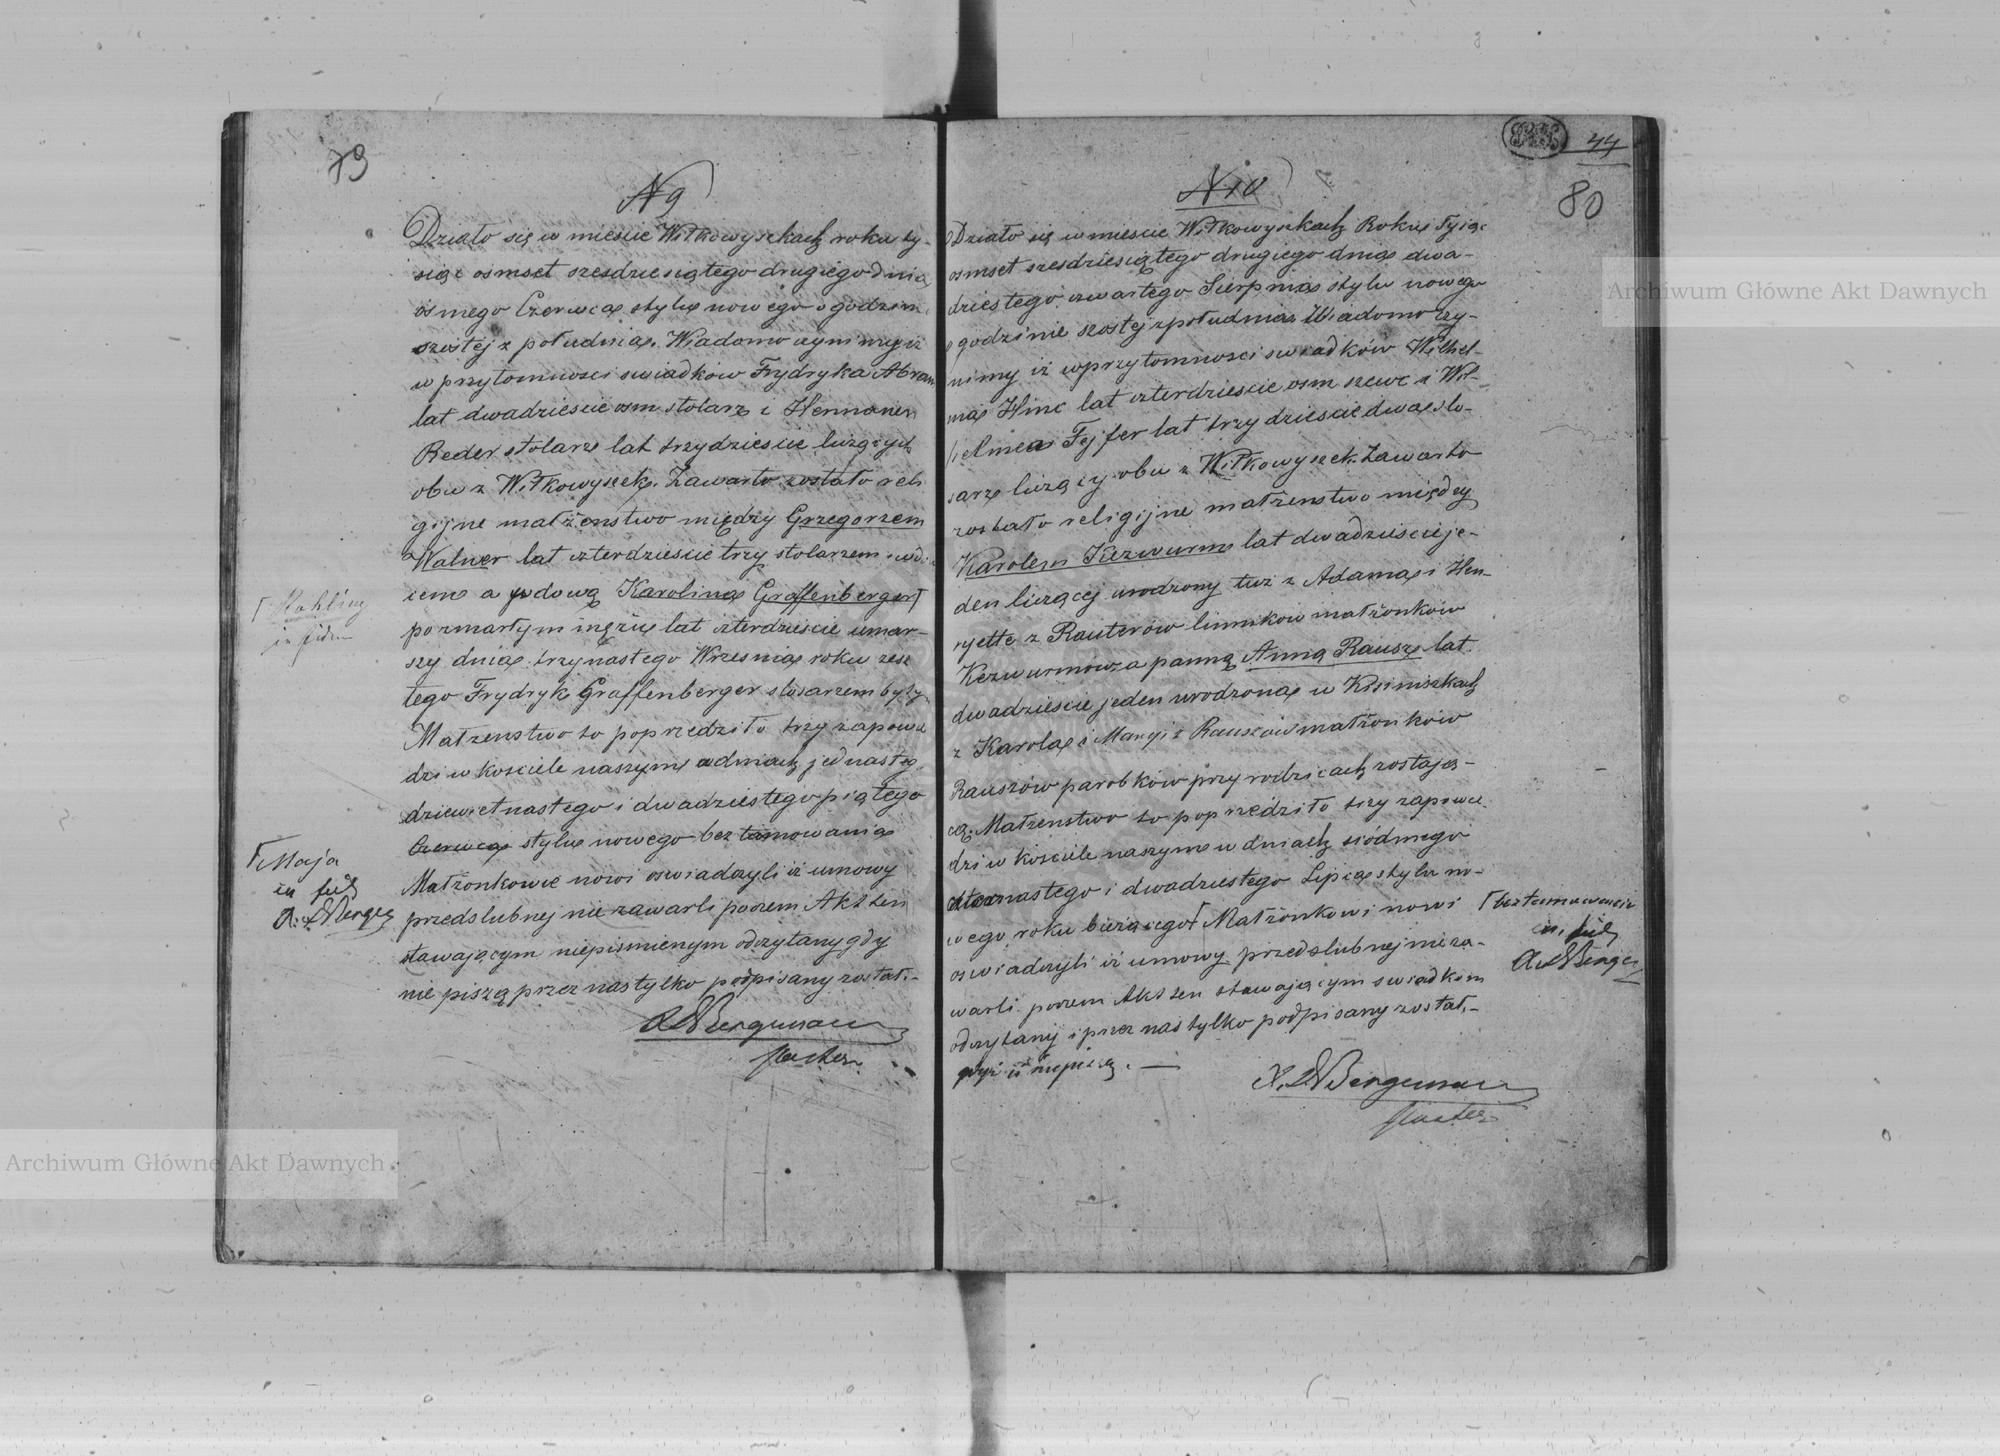 79
N 9
Działo się w miescie Wiłkowyszkach roku ty-
siąc osmset szesdziesiątego drugiego dnia
osmego Czerwca stylu nowego o godzini
szostej z południa. Wiadomo czynimy iż
w przytomnosci swiadkow Frydryka Abram
lat dwadziescie osm stolarz i Hermanen
Reder stolarz lat trzydziescie liczących
obu z Wiłkowyszek. Zawarto zostało reli
gijne małżenstwo między Grzegorzem
Walner lat czterdziescie trzy stolarzem wdo
cem a wdową Karoliną Graffenberger
po zmarłym mężu lat czterdziescie umar-
szy dnia trzynastego Wrzesnia roku zesz
tego Frydryk Graffenberger slosarzem były
Małzenstwo to poprzedziło trzy zapowie
dzi w kosciele naszym w dniach jednasteg
dziewiętnastego i dwadziestego piątego
Czerwca stylu nowego bez tamowania
Małżonkowie nowi oswiadczyli iż umowy
przedslubnej nie zawarli poczem Akt ten
stawającym niepismienym odczytany gdy
nie piszą przez nas tylko podpisany został.-
A. W Bergemann
Pastor
Maja
A. W Berge
44
80
N 10
Działo się w miescie Wiłkowyszkach Roku Tysiąc
osmset szesdziesiątego drugiego dnia dwa-
dziestego czwartego Sierpnia stylu nowego
o godzinie szostej z południa Wiadomo czy-
nimy iż w przytomnosci swiadków Wilhel-
ma Hinc lat czterdziescie osm szewc i Wil-
helma Fejfer lat trzydziescie dwa slo-
sarz liczący obu z Wiłkowyszek. Zawarto
zostało religijne małżenstwo między
Karolem Kezwurm lat dwadziescie je-
den liczący urodzony tuż z Adama i Hen-
ryette z Rauterów małżonków
Kezwurmów a panną Anną Rausz lat
dwadziescie jeden urodzona w Kisiniszkach
z Karola i Maryi z Rauszów małżonków
Rauszów parobków przy rodzicach zostają-
cą. Małzenstwo to poprzedziło trzy zapowie-
dzi w kosciele naszym w dniach siódmego
czternastego i dwadziestego Lipca stylu no-
wego roku bieżącego Małżonkowi nowi
oswiadczyli iż umowy przedslubnej nie za-
warli poczem Akt ten stawającym swiadkom
odczytany i przez nas tylko podpisany został.-
gdyż ii niepiszą. —
A. W Bergemann
Pastor
bez tamowania
A. W Berge
Archiwum Główne Akt Dawnych
Archiwum Główne Akt Dawnych